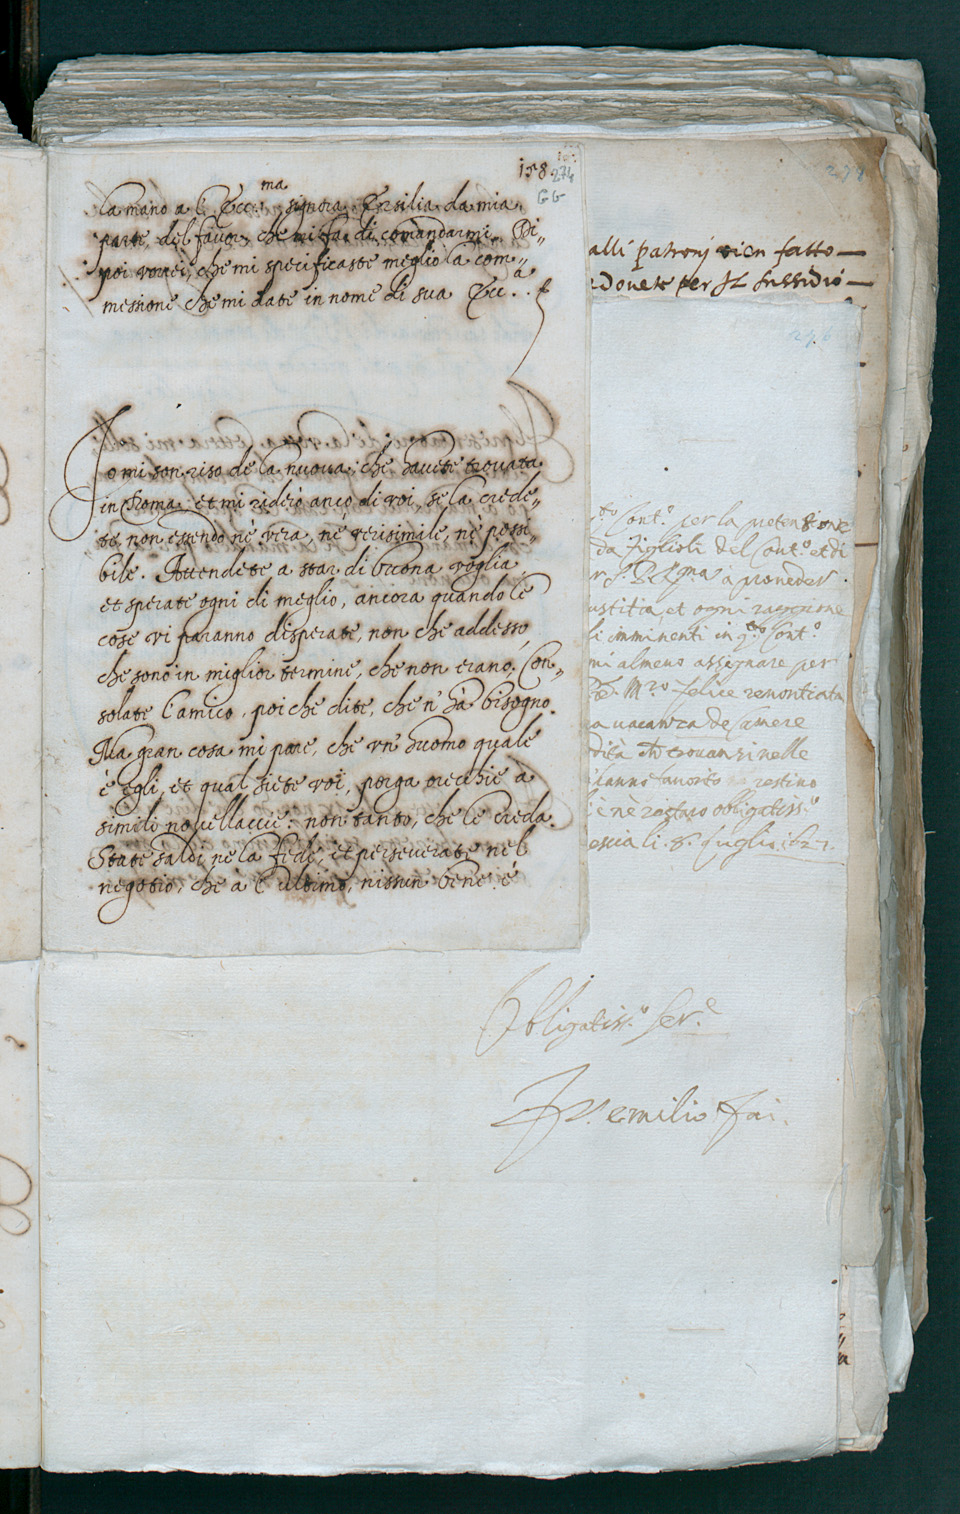 158
274
GG
la mano a l'Ecc.ma signora Ersilia da mia
parte del favor, che mi fa di comandarmi. Di=
poi vorrei, che mi specificaste meglio la com=
messione che mi date in nome di sua Ecc.a
Io mi son riso de la nuova, che havete trovata
in Roma; et mi riderò anco di voi, se la crede=
te non essendo nè vera, nè verisimile, nè possi=
bile. Attendete a star di buona voglia,
et sperate ogni di meglio, ancora quando le
cose vi paranno disperate, non che addesso,
che sono in miglior termine, che non erano. Con=
solate l'amico, poi che dite, che n'hà bisogno.
Ma gran cosa mi pare, che un' huomo quale
è egli, et qual siete voi, porga orecchie a
simili novellaccie: non tanto, che le creda.
State saldi ne la fede, et perseverate nel
negotio, che à l'ultimo, nissun bene è
278
alli patronj vien fatto
donete per Il sussidio
276
to Cont.o per la pretensione
da figlioli del Cont.o et di
à proveder
iustitia, et ogni raggione
li imminenti in q.to Cont.o
mi almeno assegnare per
M.ro felice renontiata
a vacanza de Camere
trovansi nelle
restino
nè restaro obbligatiss.o
li 8. luglio 1627.
Obligatiss.o Ser.e
emilio fai.